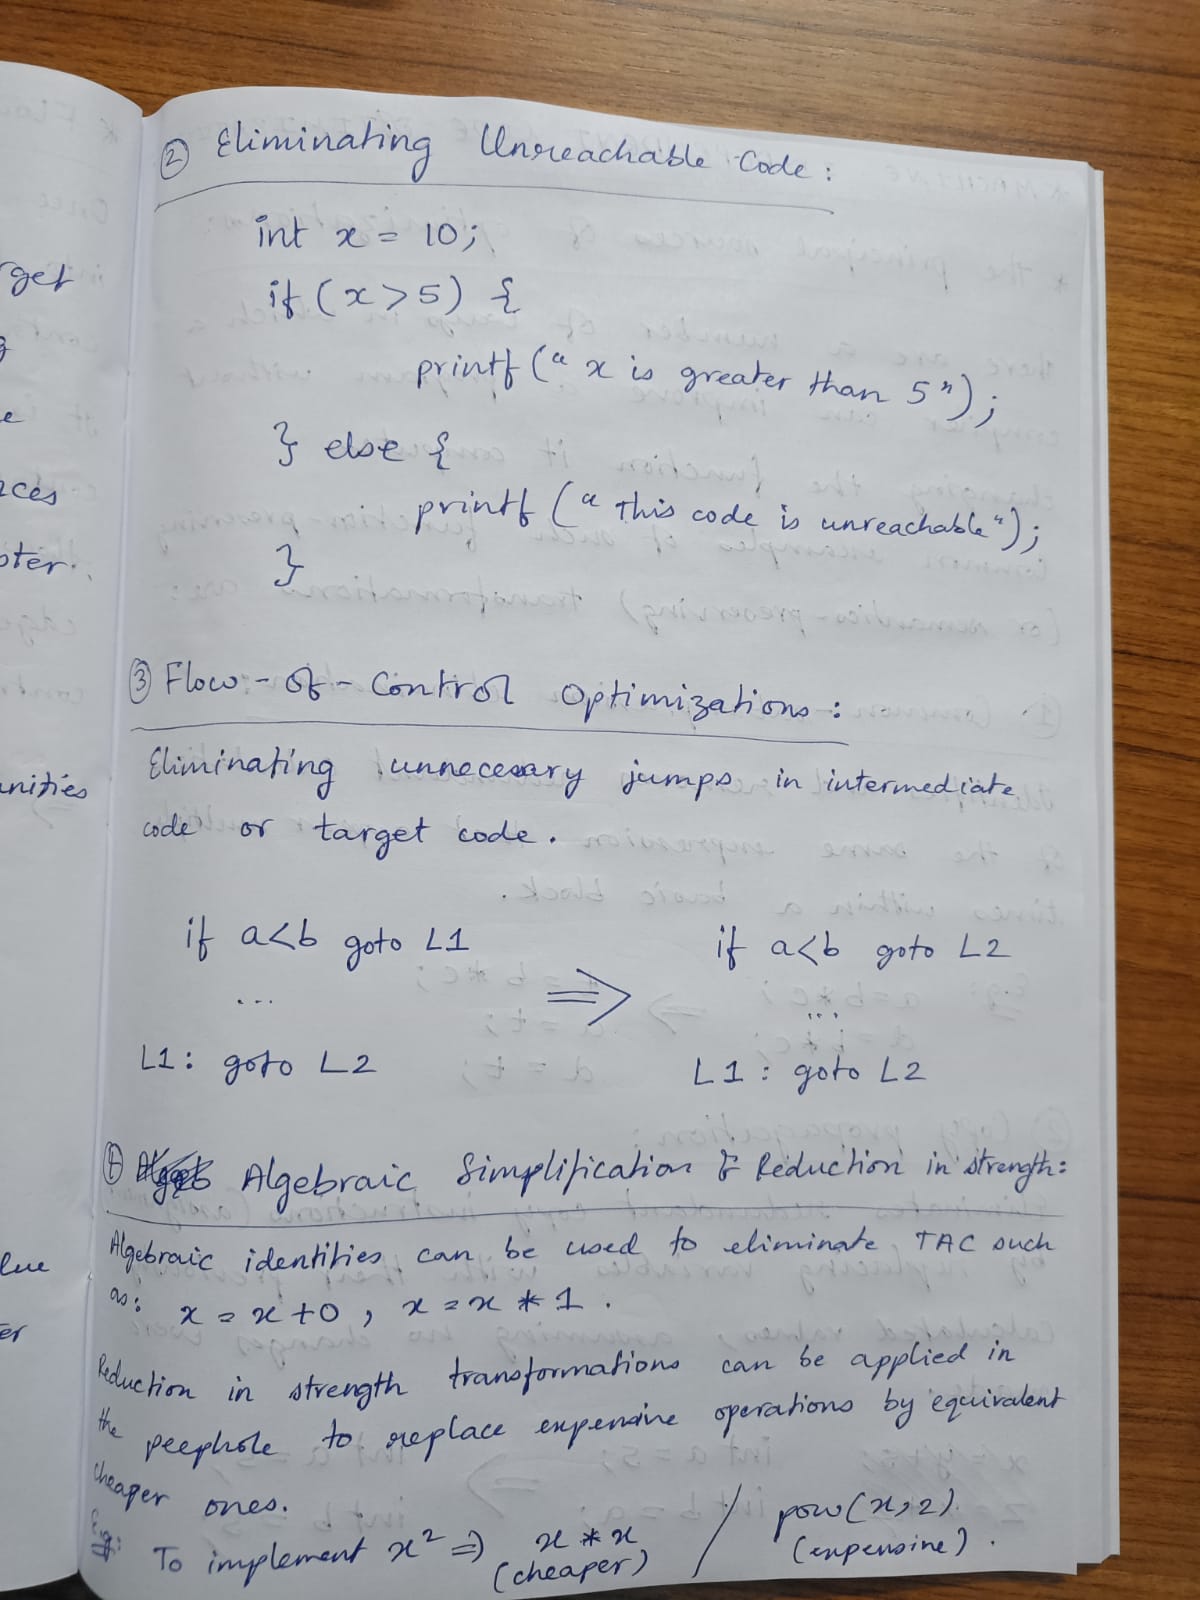 rget
g
e
nces
pter.
unities
lue
ter
② Eliminating Unreachable Code:
int x = 10;
if (x>5) {
printf ("x is greater than 5");
} else {
printf ("This code is unreachable");
}
③ Flow-of-Control Optimizations:
Eliminating unnecessary jumps in intermediate
code or target code.
if a<b goto L1 ⇒ if a<b goto L2
... ...
L1: goto L2 L1: goto L2
④ Algebraic Simplification & Reduction in strength:
Algebraic identities can be used to eliminate TAC such
as: x = x+0, x = x * 1.
Reduction in strength transformations can be applied in
the peephole to replace expensive operations by equivalent
cheaper ones.
E.g: To implement x² ⇒ x * x / pow(x,2).
(cheaper) (expensive).